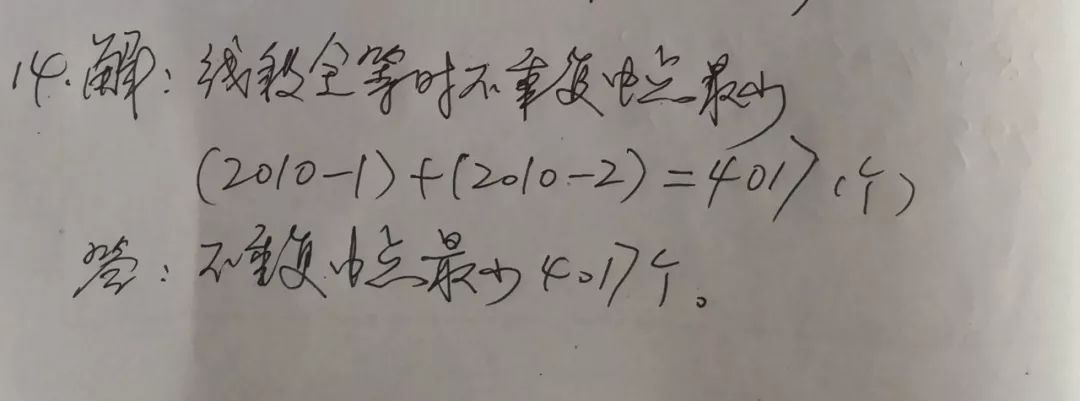 14.解：线段全等时不重复中点最少
(2010-1)+(2010-2)=4017(个)
答：不重复中点最少4017个。